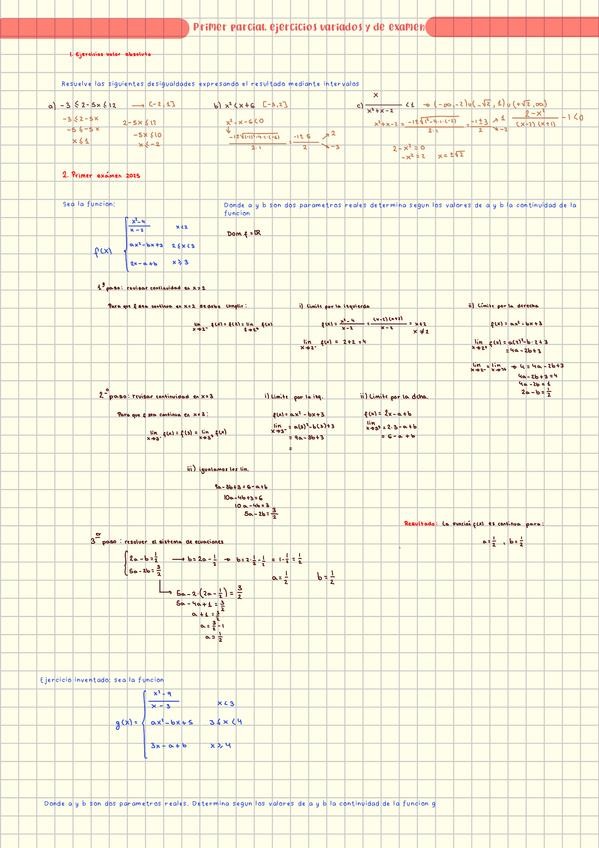 Primer parcial. Ejercicios variados y de examen
1. Ejercicios valor absoluto
Resuelve las siguientes desigualdades expresando el resultado mediante intervalos
a) -3 ≤ 2-5x ≤ 12 → [-2,1]
-3 ≤ 2-5x
-5 ≤ -5x
x ≤ 1
2-5x ≤ 12
-5x ≤ 10
x ≤ -2
b) x² < x+6 [-3,2]
x²-x-6 < 0
2
-3
c) x / x²+x-2 < 1 → (-∞,-2)∪(-√2, 1)∪(+√2, ∞)
2-x² = 0
-x² = 2 x = ±√2
2. Primer exámen 2023
Sea la funcion:
Donde a y b son dos parametros reales determina segun los valores de a y b la continuidad de la
funcion
Dom f = ℝ
f(x)
x²-4 / x-2 x<2
ax²-bx+3 2≤x<3
2x-a+b x≥3
1º paso: revisar continuidad en x=2
Para que f sea continua en x=2 se debe cumplir:
i) Limite por la izquierda
f(x) = x²-4 / x-2 = (x-2)(x+2) / x-2 = x+2
x≠2
lim f(x) = 2+2 = 4
ii) Límite por la derecha
f(x) = ax²-bx+3
lim f(x) = a(2)²-b·2+3
= 4a-2b+3
→ 4 = 4a-2b+3
4a-2b+3 = 4
4a-2b = 1
2a-b = 1/2
2º paso: revisar continuidad en x=3
Para que f sea continua en x=3:
i) Limite por la izq.
f(x) = ax²-bx+3
lim = a(3)²-b(3)+3
= 9a-3b+3
=
ii) Limite por la dcha.
f(x) = 2x-a+b
lim = 2·3-a+b
= 6-a+b
iii) igualamos los lim.
9a-3b+3 = 6-a+b
10a-4b+3 = 6
10a-4b = 3
5a-2b = 3/2
Resultado: La funcion f(x) es continua para:
a = 1/2 , b = 1/2
3º paso: resolver el sistema de ecuaciones
2a-b = 1/2 → b = 2a-1/2 → b = 2·1/2-1/2 = 1-1/2 = 1/2
5a-2b = 3/2
a = 1/2 b = 1/2
5a-2·(2a-1/2) = 3/2
5a-4a+1 = 3/2
a+1 = 3/2
a = 3/2-1
a = 1/2
Ejercicio inventado: sea la funcion
g(x) =
x²-9 / x-3 x<3
ax²-bx+5 3≤x<4
3x-a+b x≥4
Donde a y b son dos parametros reales. Determina segun los valores de a y b la continuidad de la funcion g